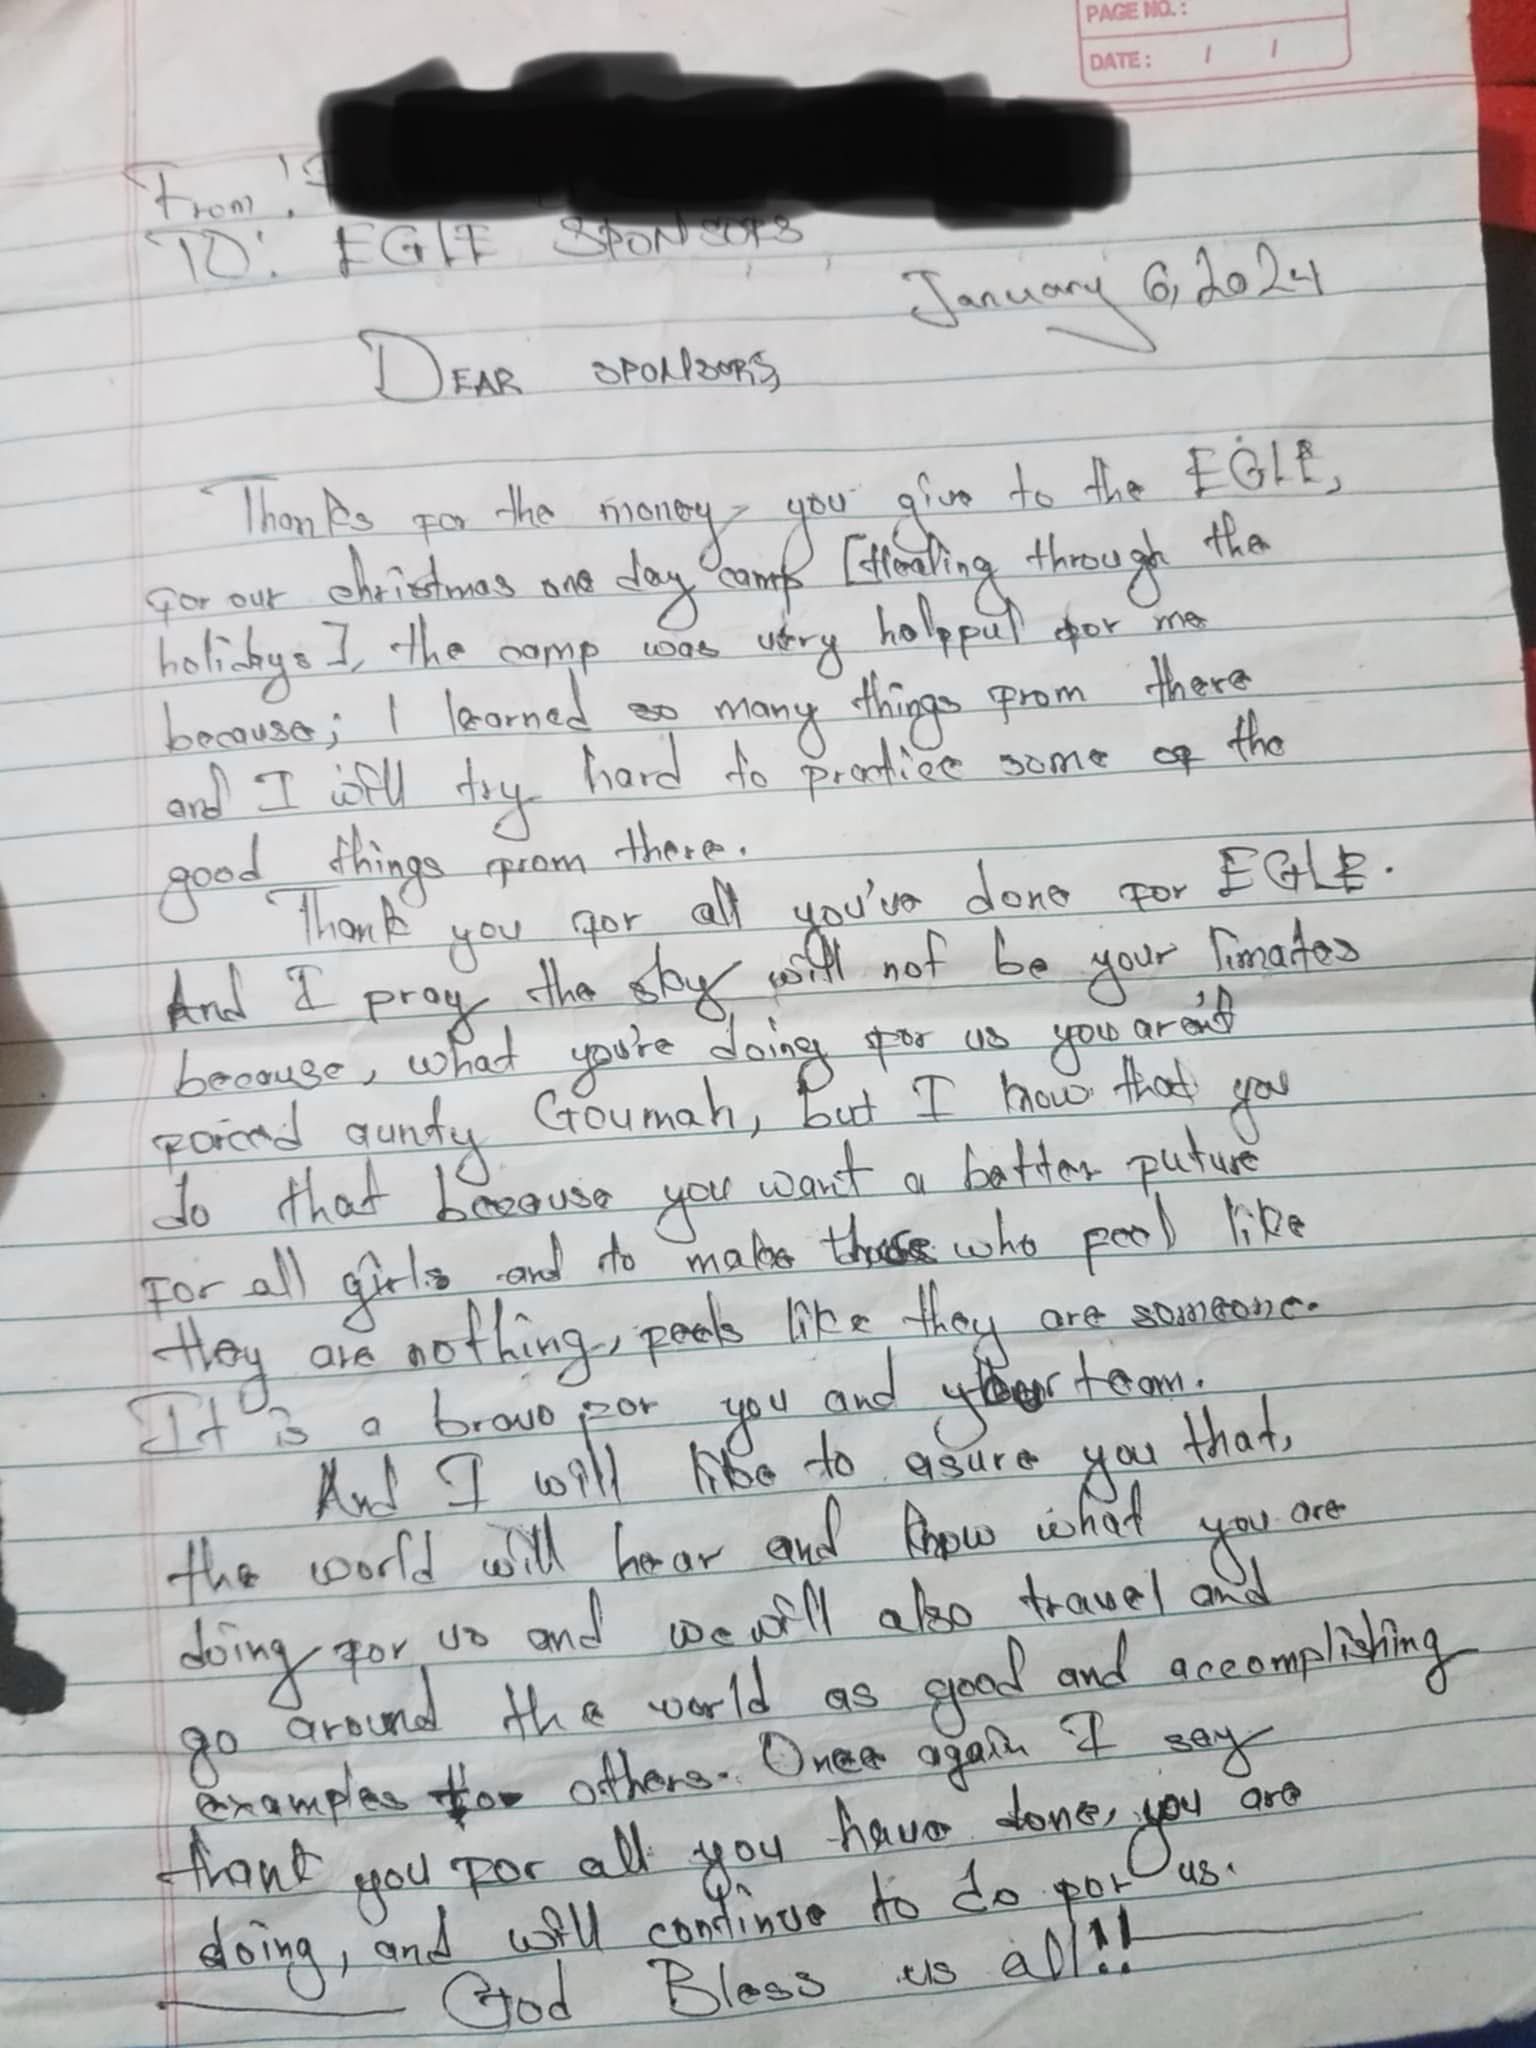 PAGE NO.:
DATE: / /
From:
TO: EGLE SPONSORS,
January 6, 2024
DEAR SPONSORS,
Thanks for the money you give to the EGLE,
for our christmas one day camp [Healing through the
holidays], the camp was very helpful for me
because; I learned so many things from there
and I will try hard to practice some of the
good things from there.
Thank you for all you've done for EGLE.
And I pray the sky will not be your limates
because, what you're doing for us you aren't
forced aunty Goumah, but I know that you
do that because you want a better future
for all girls and to make those who feel like
they are nothing, feels like they are someone.
It is a bravo for you and your team.
And I will like to asure you that,
the world will hear and know what you are
doing for us and we will also travel and
go around the world as good and accomplishing
examples to others. Once again I say
thank you for all you have done, you are
doing, and will continue to do for us.
God Bless us all!!